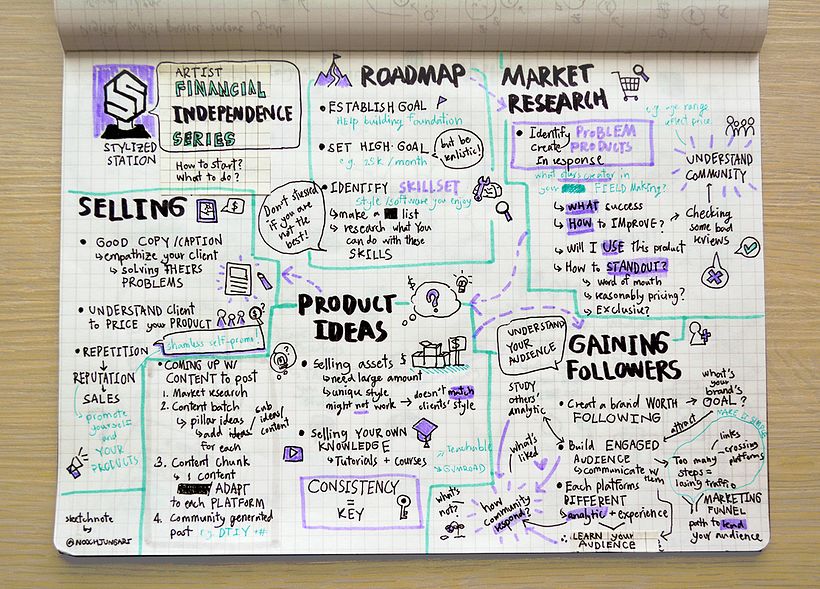 STYLIZED
STATION
ARTIST
FINANCIAL
INDEPENDENCE
SERIES
How to start?
what to do?
ROADMAP
• ESTABLISH GOAL
Help building foundation
• SET HIGH GOAL
e.g. 25k / month
but be
realistic!
• IDENTIFY SKILLSET
Style/software you enjoy
↳ make a list
↳ research what you
can do with these
SKILLS
Don't stressed
if you are
not the
best!
MARKET
RESEARCH
• Identify PROBLEM
create PRODUCTS
in response
e.g. age range,
affect price.
UNDERSTAND
COMMUNITY
in
your FIELD Making?
↳ WHAT success
↳ HOW to IMProve? → Checking
some bad
reviews
↳ Will I USE this product
↳ How to STANDOUT?
↳ word of mouth
↳ reasonably pricing?
↳ Exclusive?
SELLING
• GOOD COPY/CAPTION
↳ empathize your client
↳ solving THEIRS
PROBLEMS
• UNDERSTAND Client
to PRICE your PRODUCT
shamless self-promo
• REPETITION
REPUTATION
SALES
promote
yourself
and
YOUR
PRODUCTS
• COMING UP W/
CONTENT to post
1. Market research
2. Content batch
↳ pillar ideas / sub
idea/
content
↳ add ideas
for each
3. Content chunk
↳ 1 content
ADAPT
to each PLATFORM
4. Community generated
post e.g. DTIY #
PRODUCT
IDEAS
?
$
• Selling assets
↳ need large amount
↳ unique style
might not work → doesn't match
clients' style
• Selling YOUR OWN
KNOWLEDGE
↳ Tutorials + Courses
Teachable
GUMROAD
CONSISTENCY
=
KEY
UNDERSTAND
YOUR
AUDIENCE
GAINING
FOLLOWERS
STUDY
others'
analytic
what's
liked
what's
not?
how
community
respond?
• Creat a brand WORTH
FOLLOWING
what's
your
brand's
GOAL?
MAKE IT SIMPLE
attract
• Build ENGAGED
AUDIENCE
↳ communicate w/
them
• Each platforms
DIFFERENT
analytic + experience
∴ LEARN your
AUDIENCE
links
crossing
platforms
Too many
steps =
losing traffic
MARKETING
FUNNEL
path to lead
your audience
sketchnote
by
@NOOCHJUNGARI